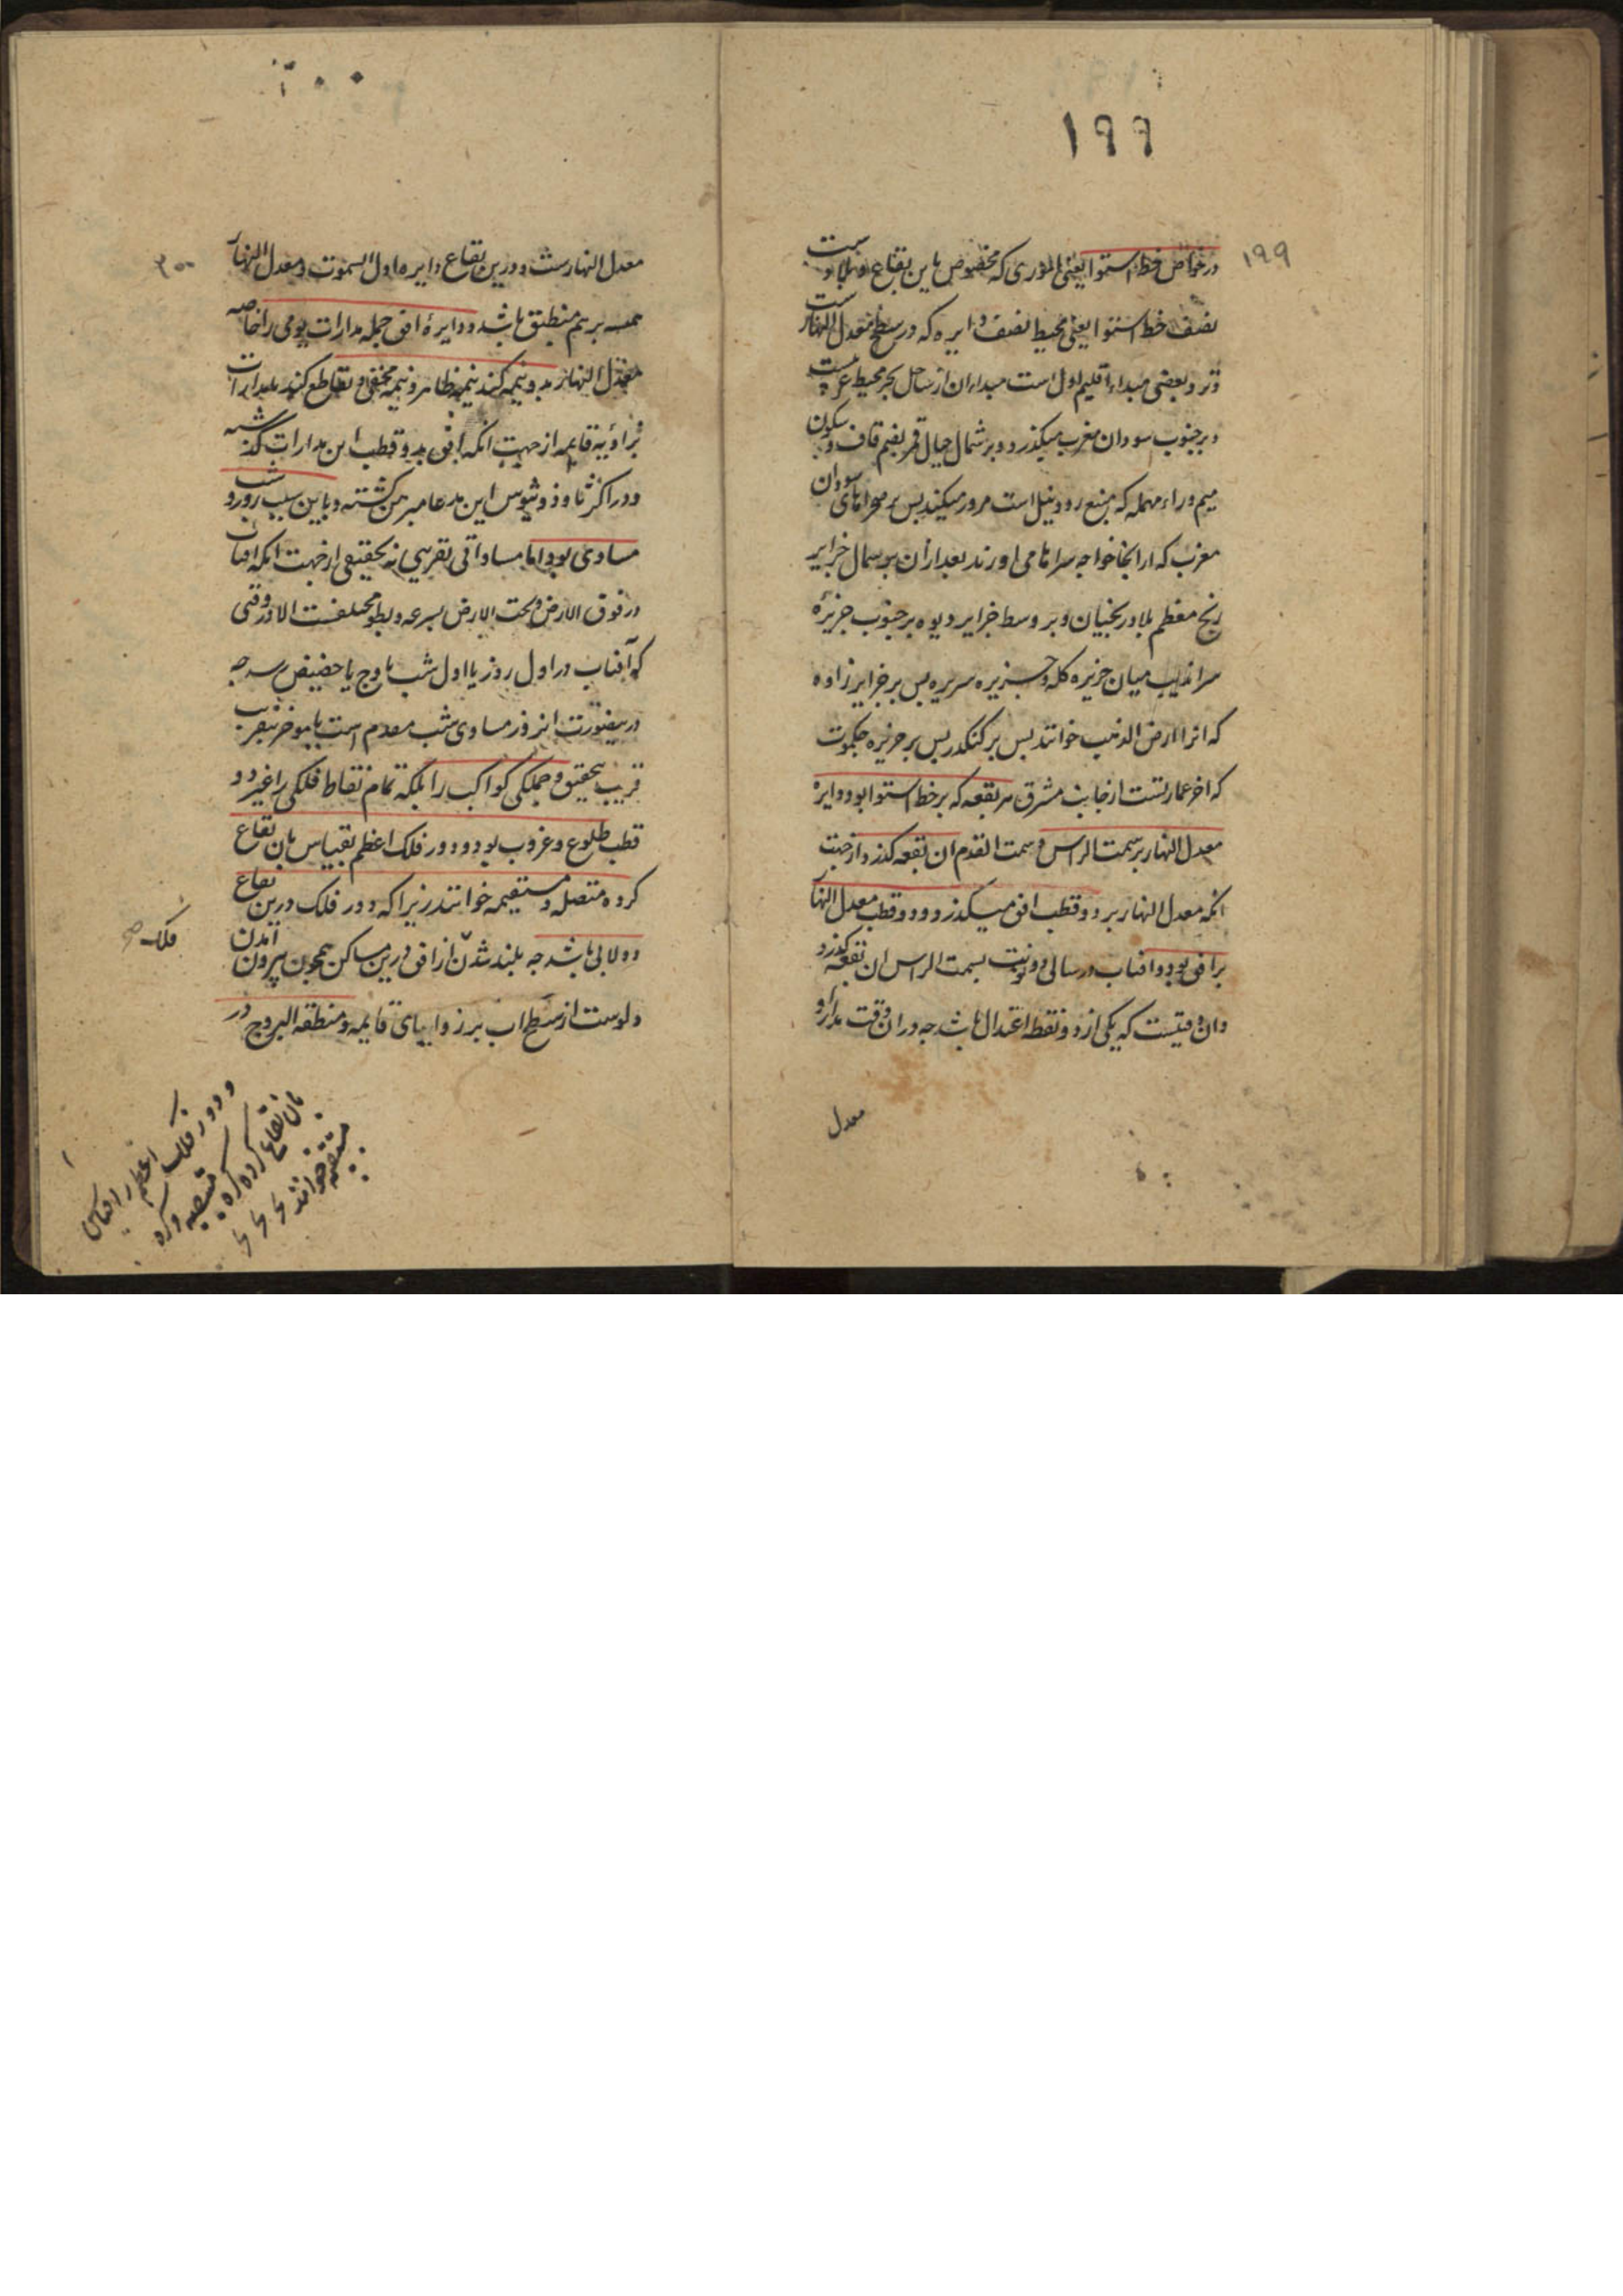 ١٩٩
١٩٩
در خواص خط استوا یعنی اموری که مخصوص باین بقاع
نصف خط استوا یعنی محیط نصف دایره که در سطح معدل النهار است
و نزد بعضی مبداء اقلیم اول است مبداء ان از ساحل بحر محیط غربیست
و بر جنوب سودان مغرب میگذرد و بر شمال جبال قمر بضم قاف و سکون
میم و راء مهمله که منبع رود نیل است مرور میکند پس بر صحراهای سودان
مغرب که از انجا خواجه سراها می اورند بعد از ان بر شمال جزایر
زنج معظم بلاد زنجیان و بر وسط جزایر دیوه بر جنوب جزیرهٔ
سراندیب میان جزیره کله و جزیره سریره پس بر جزایر زاوه
که انرا ارض الذهب خوانند پس بر کنکدز پس بر جزیره جمکوت
که اخر عمارتست از جانب مشرق هر بقعه که بر خط استوا بود دایره
معدل النهار بر سمت الراس و سمت القدم ان بقعه گذرد از جهت
انکه معدل النهار بر دو قطب افق میگذرد و دو قطب معدل النهار
بر افق بود و افتاب در سالی دو نوبت بسمت الراس ان بقعه گذرد
و ان وقتیست که یکی از دو نقطه اعتدال باشد چه در ان وقت مدار او
معدل
٢٠٠
معدل النهارست و درین بقاع دایره اول السموت و معدل النهار
همیشه بر هم منطبق باشد و دایرهٔ افق جمله مدارات یومی را خاصه
معدل النهار بدو نیمه کند نیمه ظاهر و نیمه مخفی و تقاطع کند بمدارات
بزاویهٔ قایمه از جهت انکه افق بدو قطب این مدارات گذشته
و در اکر ثاوذوسیوس این مدعا مبرهن گشته و باین سبب روز و شب
مساوی بود اما مساواتی تقریبی نه تحقیقی از جهت انکه افتاب
در فوق الارض و تحت الارض بسرعه و بطو مختلفست الا در وقتی
که آفتاب در اول روز یا اول شب باوج یا حضیض رسد چه
درینصورت انروز مساوی شب مقدم است یا موخر بتقریب
قریب بتحقیق و جملگی کواکب را بلکه تمام نقاط فلکی را غیر دو
قطب طلوع و غروب بود و دور فلک اعظم بقیاس بان بقاع
کروه متصله و مستقیمه خوانند زیرا که دور فلک درین بقاع
دولابی باشد چه بلند شدن از افق درین مساکن همچون بیرون آمدن
دلوست از سطح اب بر زوایای قایمه و منطقه البروج در
فلک صح
و دور فلک اعظم را بقیاس
بان بقاع کرده کره
مستقیمه خوانند